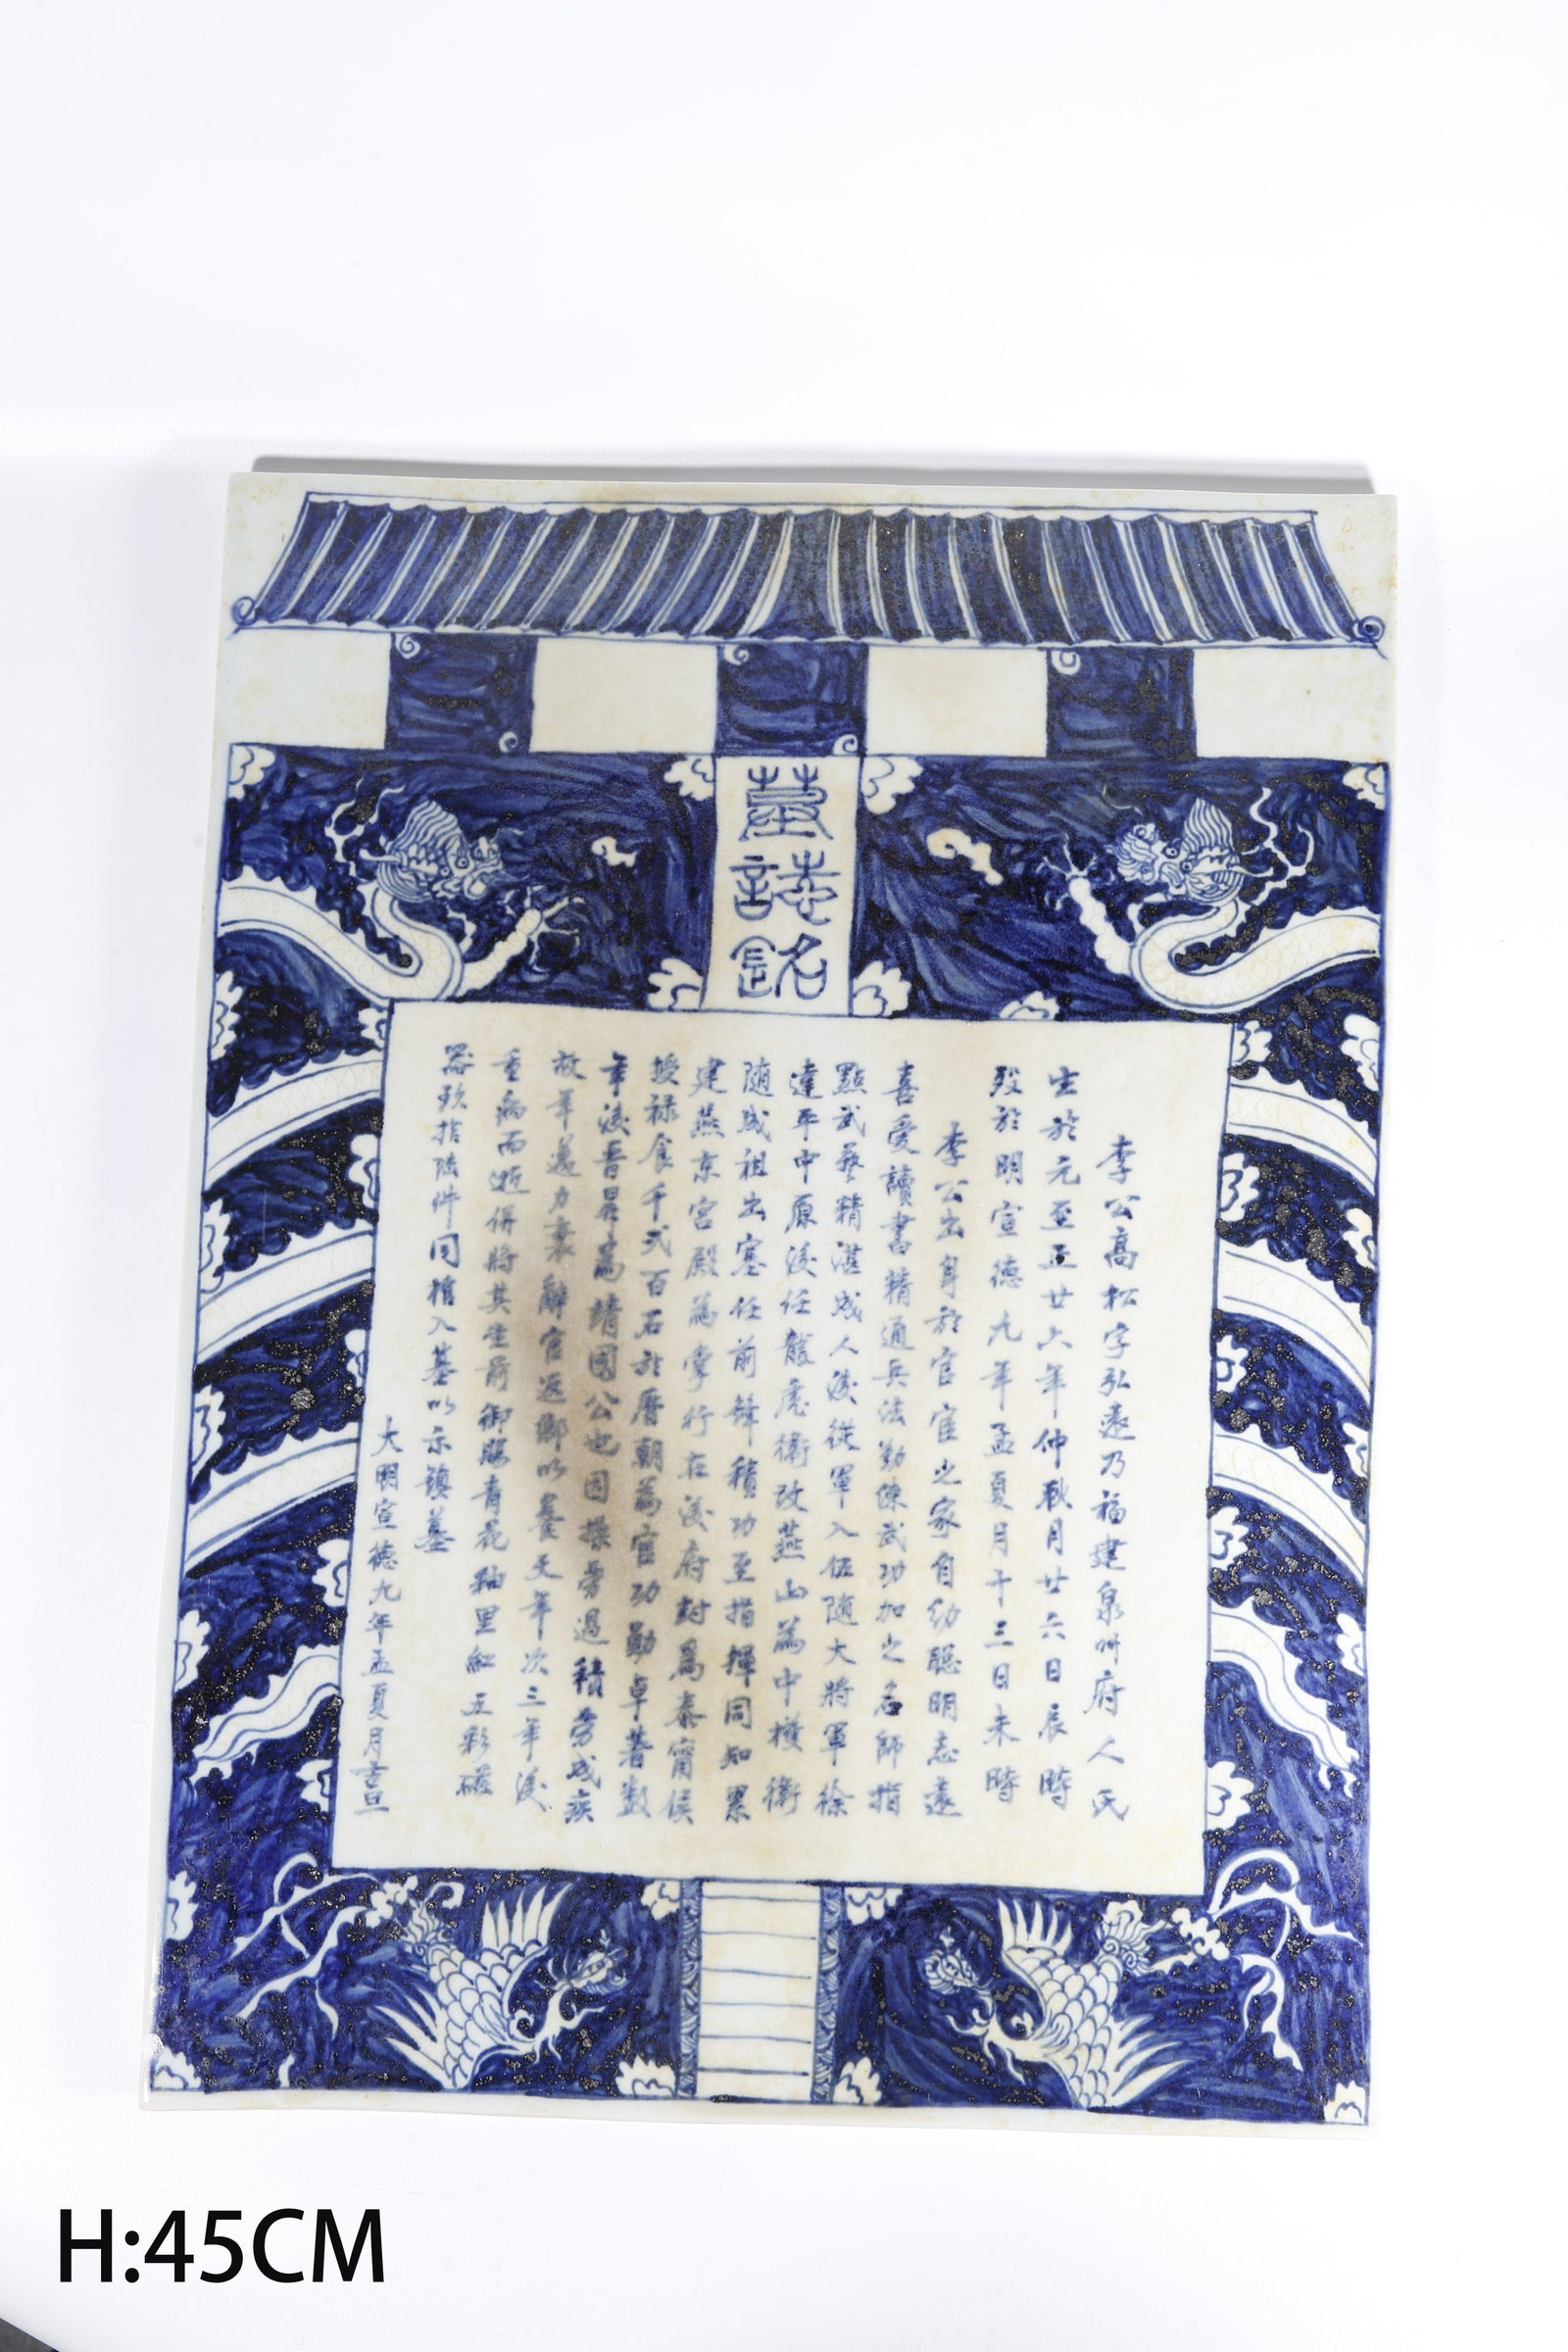 墓誌銘
李公高松字弘遠乃福建泉州府人氏
生於元至正廿六年仲秋月廿六日辰時
殁於明宣德九年孟夏月十三日未時
李公出身於官宦之家自幼聰明志遠
喜愛讀書精通兵法勤練武功加之名師指
點武藝精湛成人後從軍入伍隨大將軍徐
達平中原後任龍虎衛改燕山為中護衛
随成祖出塞任前鋒積功至指揮同知累
建燕京宮殿為掌行在後府封為泰甯侯
授禄食千弍百石於曆朝為官功勛卓著数
年後晋昇為靖國公也因操勞過積勞成疾
故年邁力衰辭官返鄉以養天年次三年後
重病而逝併將其生前御賜青花釉里紅五彩磁
器玖拾陆件同棺入墓以示鎮墓
大明宣德九年孟夏月吉旦
H:45CM